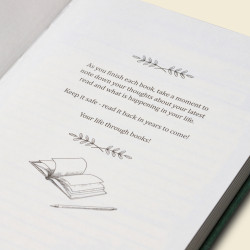 As you finish each book, take a moment to
note down your thoughts about your latest
read and what is happening in your life.
Keep it safe - read it back in years to come!
Your life through books!